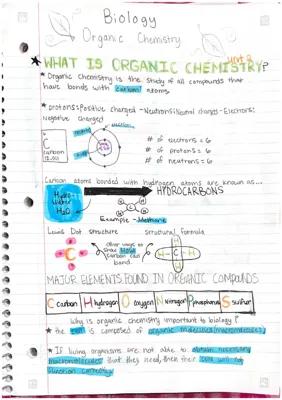 Biology
Organic Chemistry
Unit 2
★ WHAT IS ORGANIC CHEMISTRY?
★ Organic Chemistry is the study of all compounds that
have bonds with carbon atoms.
★ protons: Positive charged - Neutrons: Neutral charges - Electrons:
Negative charged
C
carbon
12.011
# of electrons = 6
# of protons = 6
# of neutrons = 6
Carbon atoms bonded with hydrogen atoms are known as...
H2O
HYDROCARBONS
Example - Methane
Lewis Dot structure
Structural formula
Other ways to
show how
Carbon can
bond.
C
H-C-H
MAJOR ELEMENTS FOUND IN ORGANIC COMPOUNDS
Carbon Hydrogen Oxygen Nitrogen Phosphorus Sulfur
Why is organic chemistry important to biology?
★ the cell is composed of organic molecules (macromolecules)
★ If living organisms are not able to obtain necessary
macromolecules that they need, then their cells will not
function correctly